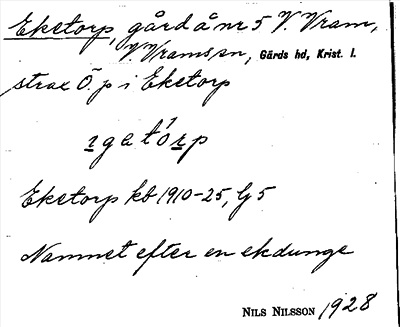 Eketorp, gård å nr 5 V. Vram,
V. Vrams sn, Gärds hd, Krist. l.
strax Ö. p i Eketorp
Eketorp kb 1910-25, Lj 5
Namnet efter en ekdunge
NILS NILSSON 1928